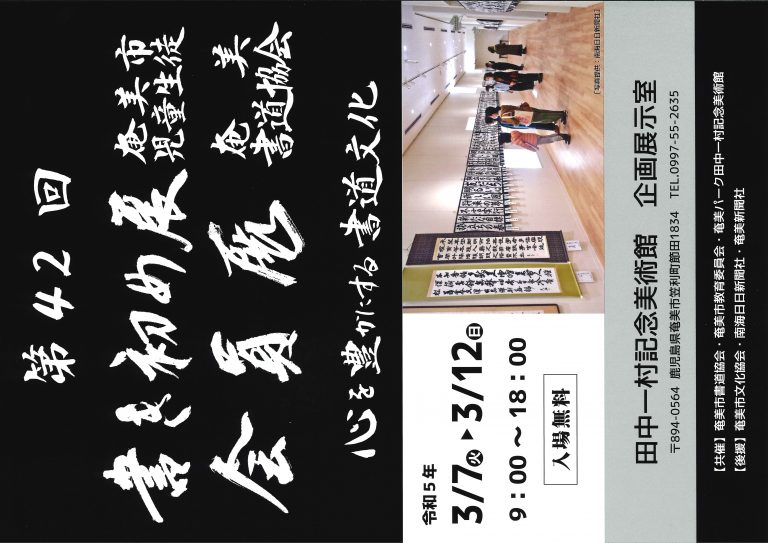 第42回
奄美市
児童生徒
書き初め展
奄美
書道協会
会員展
心を豊かにする書道文化
[写真提供:南海日日新聞社]
令和5年
3/7火▶3/12日
9:00~18:00
入場無料
田中一村記念美術館 企画展示室
〒894-0564 鹿児島県奄美市笠利町節田1834 TEL.0997-55-2635
【共催】奄美市書道協会・奄美市教育委員会・奄美パーク田中一村記念美術館
【後援】奄美市文化協会・南海日日新聞社・奄美新聞社